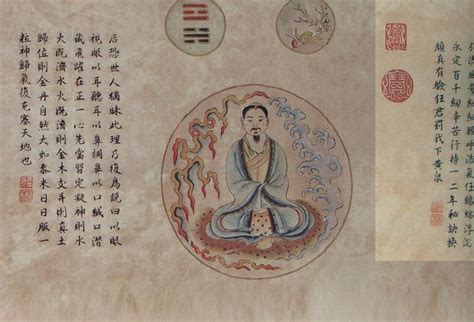 氣任
浮沉
永定百千劍辛苦行持一二年秘訣換
顏真有驗任君罰我下黃泉
后恐世人猶昧此理乃復為說曰以眼
視眼以耳聽耳以鼻調鼻以口緘口潛
藏飛躍在正一心先當習定凝神則水
火既濟水火既濟則金木交并則真土
歸位則金丹自然大如黍米日日服一
粒神歸氣復充塞天地也